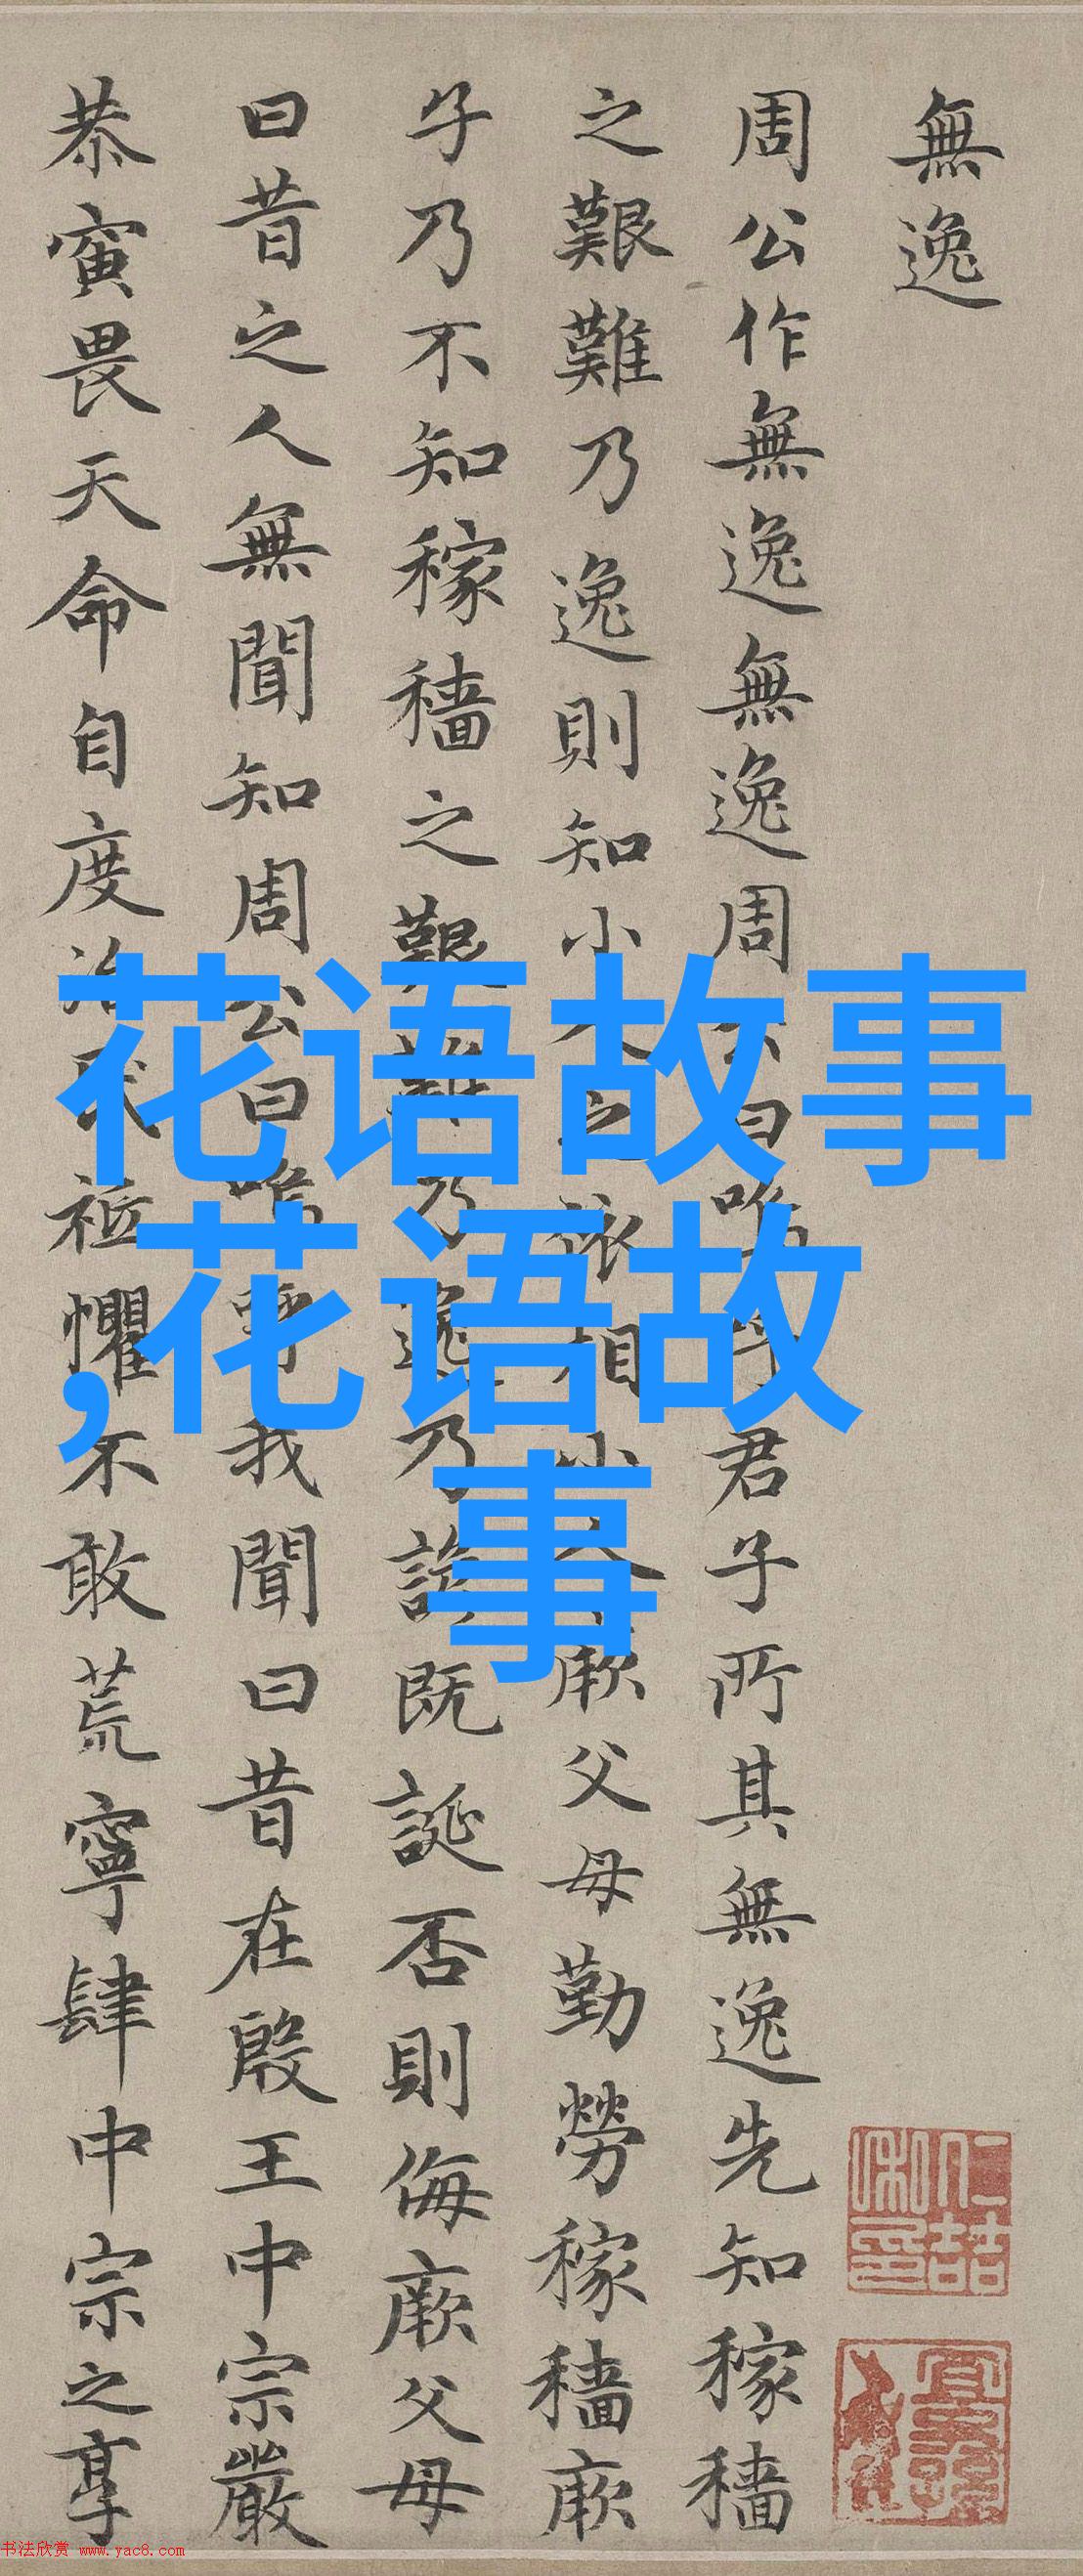 無逸
周公作無逸無逸周公曰嗚呼君子所其無逸先知稼穡
之艱難乃逸則知小人之依相小人厥父母勤勞稼穡厥
子乃不知稼穡之艱難乃逸乃諺既誕否則侮厥父母
曰昔之人無聞知周公曰嗚呼我聞曰昔在殷王中宗嚴
恭寅畏天命自度治民祗懼不敢荒寧肆中宗之享
花语故事
,花语故
事
书法欣赏 www.yac8.com